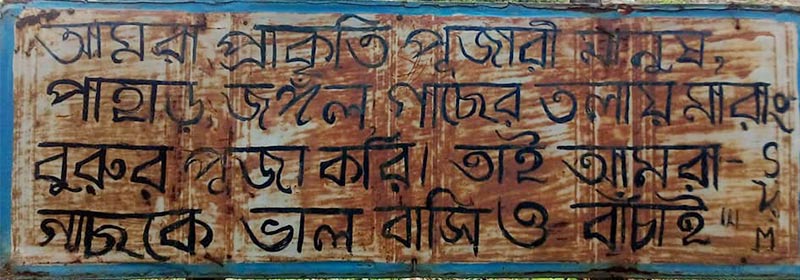 আমরা প্রাকৃতি পূজারী মানুষ,
পাহাড়, জঙ্গল, গাছের তলায় মারাং
বুরুর পূজা করি। তাই আমরা-
গাছকে ভাল বাসি ও বাঁচাই"